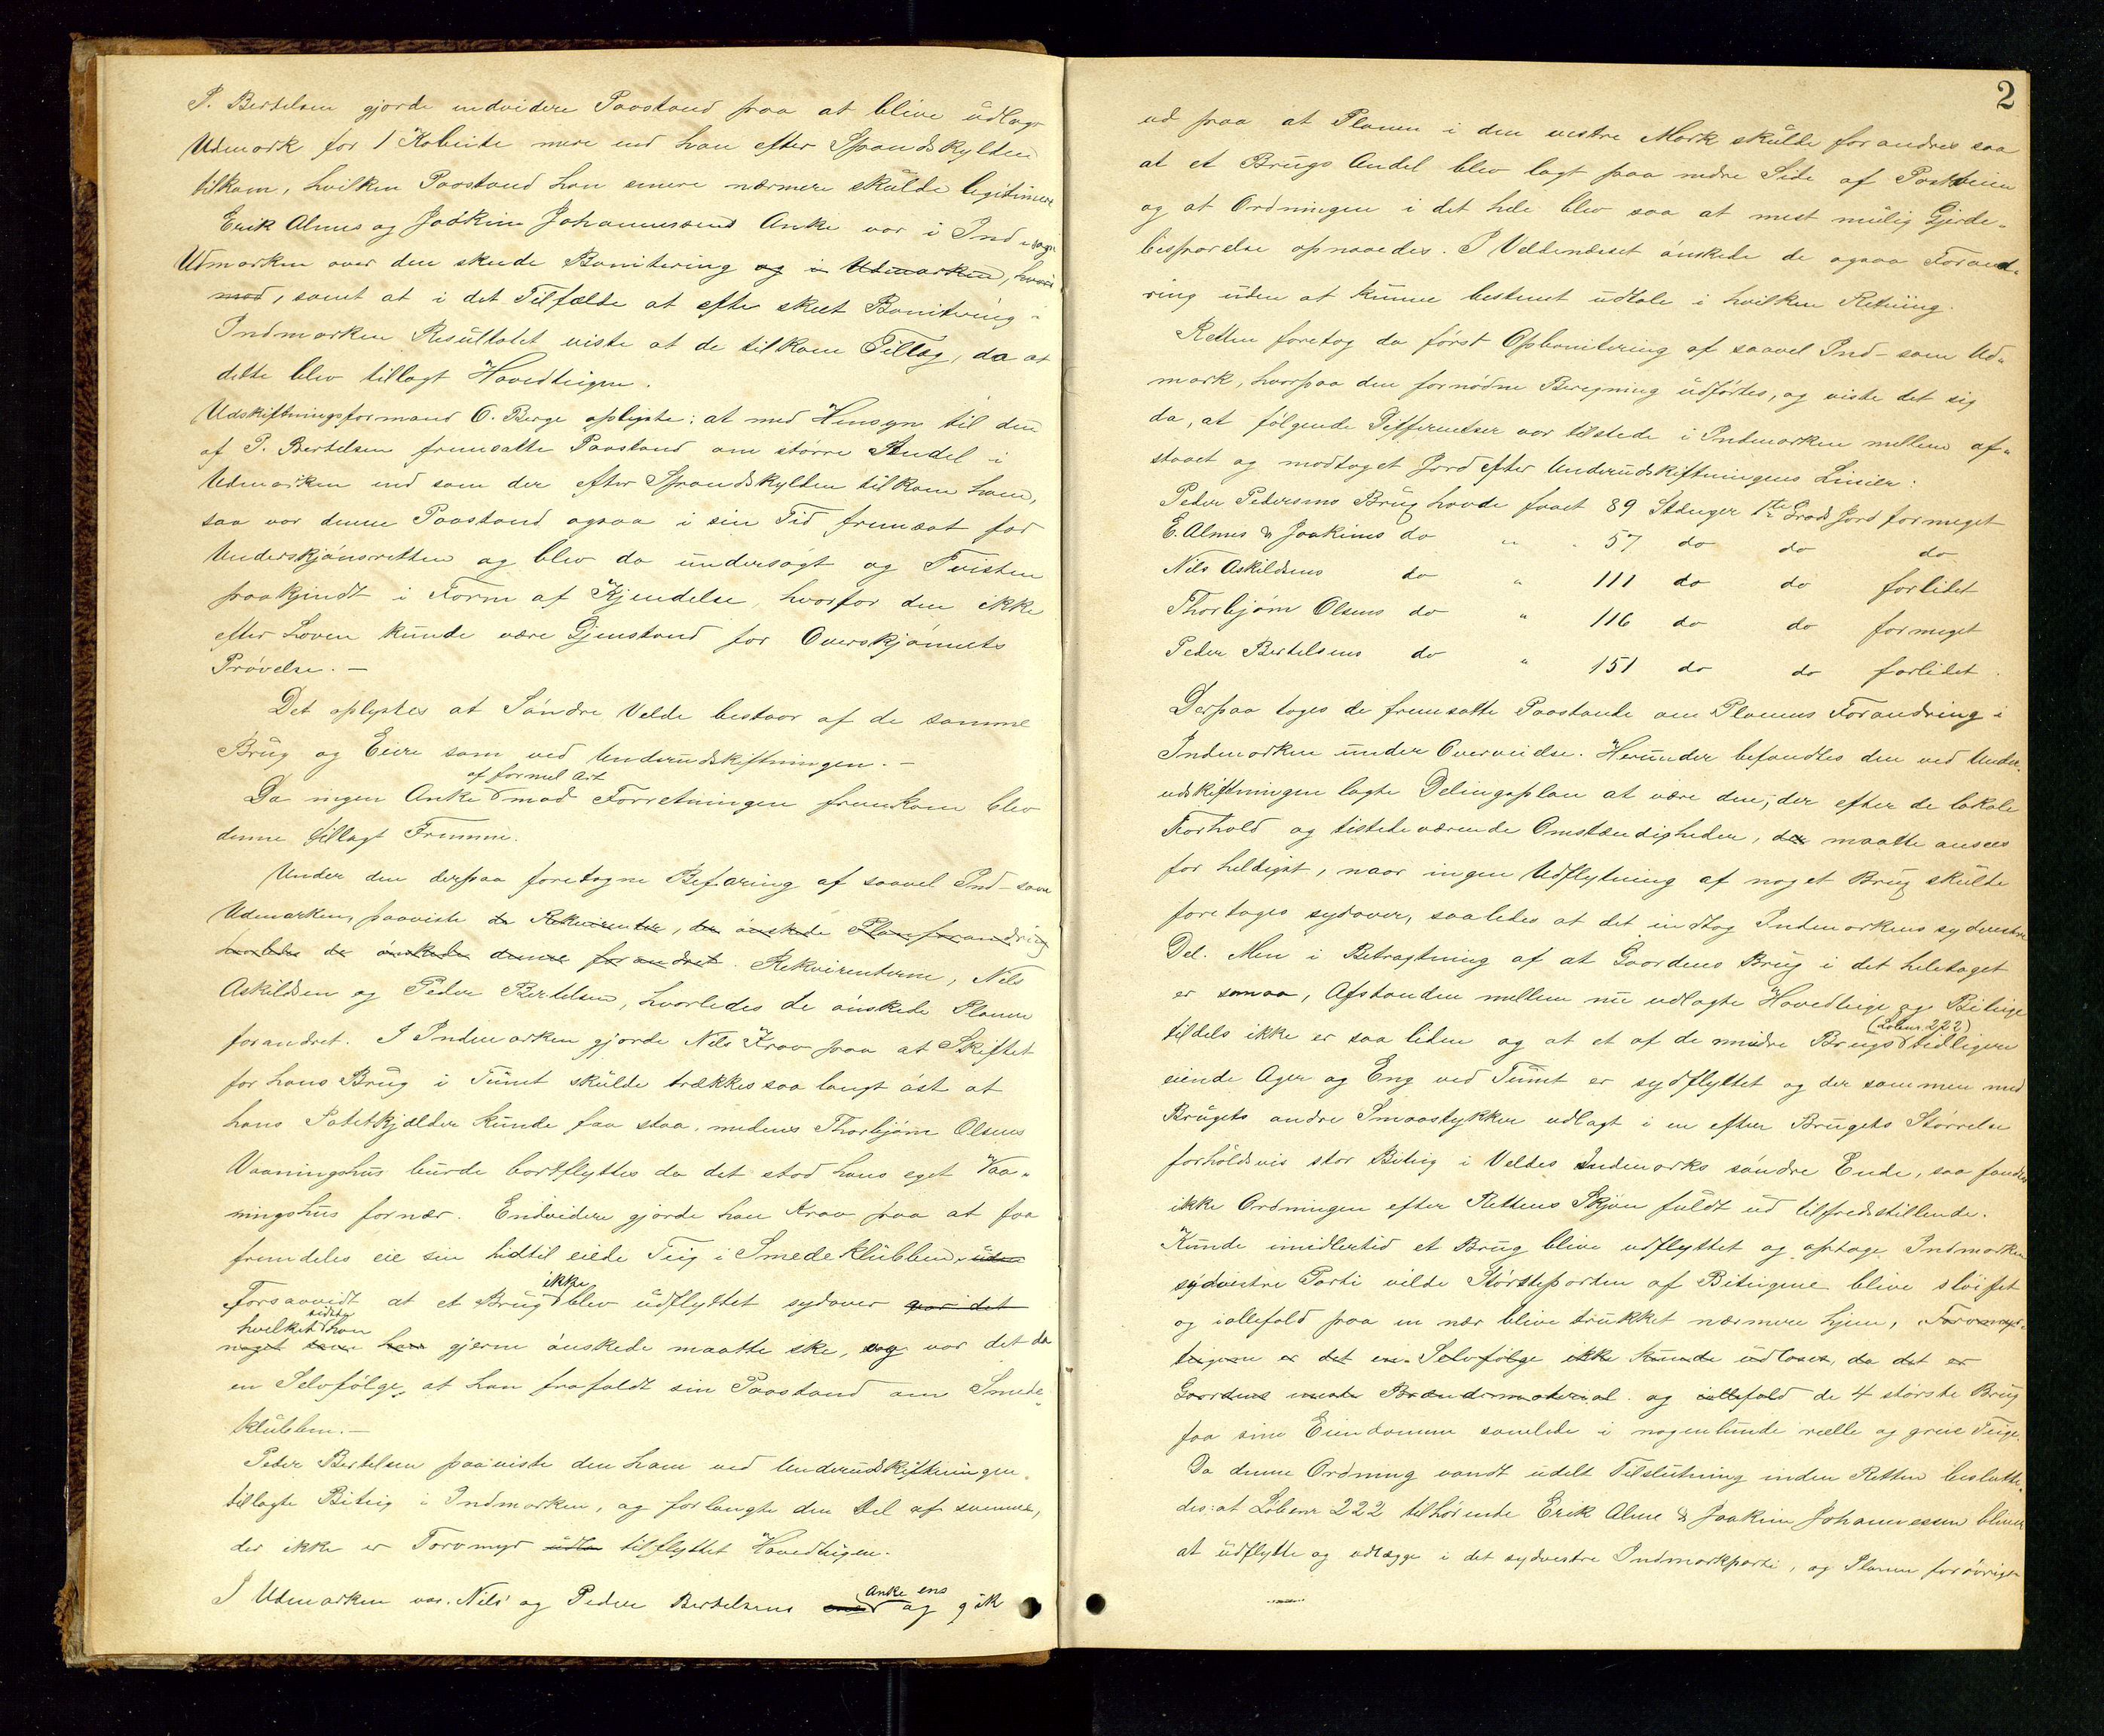 P. Bertelsen gjorde endvidere Paastand paa at blive udlagt
Udmark for 1 Kobeite mere end han efter Spandskylden
tilkom, hvilken Paastand han senere nærmere skulde legitimere
Erik Almes og Joakim Johannessens Anke var i Ind og
Udmarken over den skeede Bonitering og i Udmarken,
mod, samt at i det Tilfælde at efter skeet Bonitering
Indmarken Resultatet viste at de tilkom Tillæg, da at
dette blev tillagt Hovedteigen.
Udskiftningsformand O. Berge oplyste: at med Hensyn til den
af P. Bertelsen fremsatte Paastand om større Andel i
Udmarken end som der efter Spandskylden tilkom ham,
saa var denne Paastand ogsaa i sin Tid fremsat for
Underskjønsretten og blev da undersøgt og Tvisten
paakjendt i Form af Kjendelse, hvorfor den ikke
efter Loven kunde være Gjenstand for Overskjønnets
Prøvelse. —
Det oplystes at Søndre Velde bestaar af de samme
Brug og Eiere som ved Underudskiftningen. —
af formel Art
Da ingen Anke mod Forretningen fremkom blev
denne tillagt Fremme.
Under den derpaa foretagne Befaring af saavel Ind- som
Udmarken, paaviste de Rekvirenter, der ønskede Planforandring
hvorledes de ønskede denne forandret. Rekvirenterne, Nils
Askildsen og Peder Bertelsen, hvorledes de ønskede Planen
forandret. I Indmarken gjorde Nils Krav paa at Skiftet
for hans Brug i Tunet skulde trækkes saa langt øst at
hans Potetkjælder kunde faa staa, medens Thorbjørn Olsens
Vaaningshus burde bortflyttes da det stod hans eget Vaa-
ningshus fornær. Endvidere gjorde han Krav paa at faa
fremdeles eie sin hidtil eiede Teig i Smedeklubben. uden
ikke
Forsaavidt at et Brug blev udflyttet sydover var det
hvilket sidste han
noget som han gjerne ønskede maatte ske, og var det da
en Selvfølge, at han frafaldt sin Paastand om Smede-
klubben. —
Peder Bertelsen paaviste den ham ved Underudskiftningen
tillagte Biteig i Indmarken, og forlangte den Del af samme,
der ikke er Torvmyr udla tilflyttet Hovedteigen.
Anke ens
I Udmarken var Nils og Peder Bertelsens ens og gik
2
ud paa at Planen i den vestre Mark skulde forandres saa
at et Brugs Andel blev lagt paa nedre Side af Postveien
og at Ordningen i det hele blev saa at mest mulig Gjerde-
besparelse opnaaedes. I Veldeneset ønskede de ogsaa Forand-
ring uden at kunne bestemt udtale i hvilken Retning.
Retten foretog da først Opbonitering af saavel Ind- som Ud-
mark, hvorpaa den fornødne Beregning udførtes, og viste det sig
da, at følgende Differentser var tilstede i Indmarken mellem af-
staaet og modtaget Jord efter Underudskiftningens Linier:
Peder Pedersens Brug havde faaet 89 Stænger 1ste Grads Jord formeget
E. Almes & Joakims do " 57 do do do
Nils Askildsens do " 111 do do forlidet
Thorbjørn Olsens do " 116 do do formeget
Peder Bertelsens do " 151 do do forlidet.
Derpaa toges de fremsatte Paastande om Planens Forandring i
Indmarken under Overveielse. Herunder befandtes den ved Under-
udskiftningen lagte Delingsplan at være den, der efter de lokale
Forhold og tilstedeværende Omstændigheder, der maatte ansees
for heldigst, naar ingen Udflytning af noget Brug skulde
foretages sydover, saaledes at det indtog Indmarkens sydvestre
Del. Men i Betragtning af at Gaardens Brug i det heletaget
er smaa, Afstanden mellem nu udlagte Hovedteige og Biteige
(Løbenr. 222)
tildels ikke er saa liden og at et af de mindre Brugs tidligere
eiende Ager og Eng ved Tunet er sydflyttet og der sammen med
Brugets andre Smaastykker udlagt i en efter Brugets Størrelse
forholdsvis stor Biteig i Veldes Indmarks søndre Ende, saa fandtes
ikke Ordningen efter Rettens Skjøn fuldt ud tilfredsstillende.
Kunde imidlertid et Brug blive udflyttet og optage Indmarkens
sydvestre Parti vilde Størsteparten af Biteigene blive sløifet
og iallefald paa en nær blive trukket nærmere hjem, Torvmyr-
teigene er det en Selvfølge ikke kunde udløses, da det er
Gaardens meste Brændemateriel. og iallefald de 4 største Brug
faa sine Eiendomme samlede i nogenlunde rælle og greie Teige.
Da denne Ordning vandt udelt Tilslutning inden Retten beslutte-
des: at Løbenr 222 tilhørende Erik Alme & Joakim Johannessen bliver
at udflytte og udlægge i det sydvestre Indmarkparti, og Planen forøvrigt